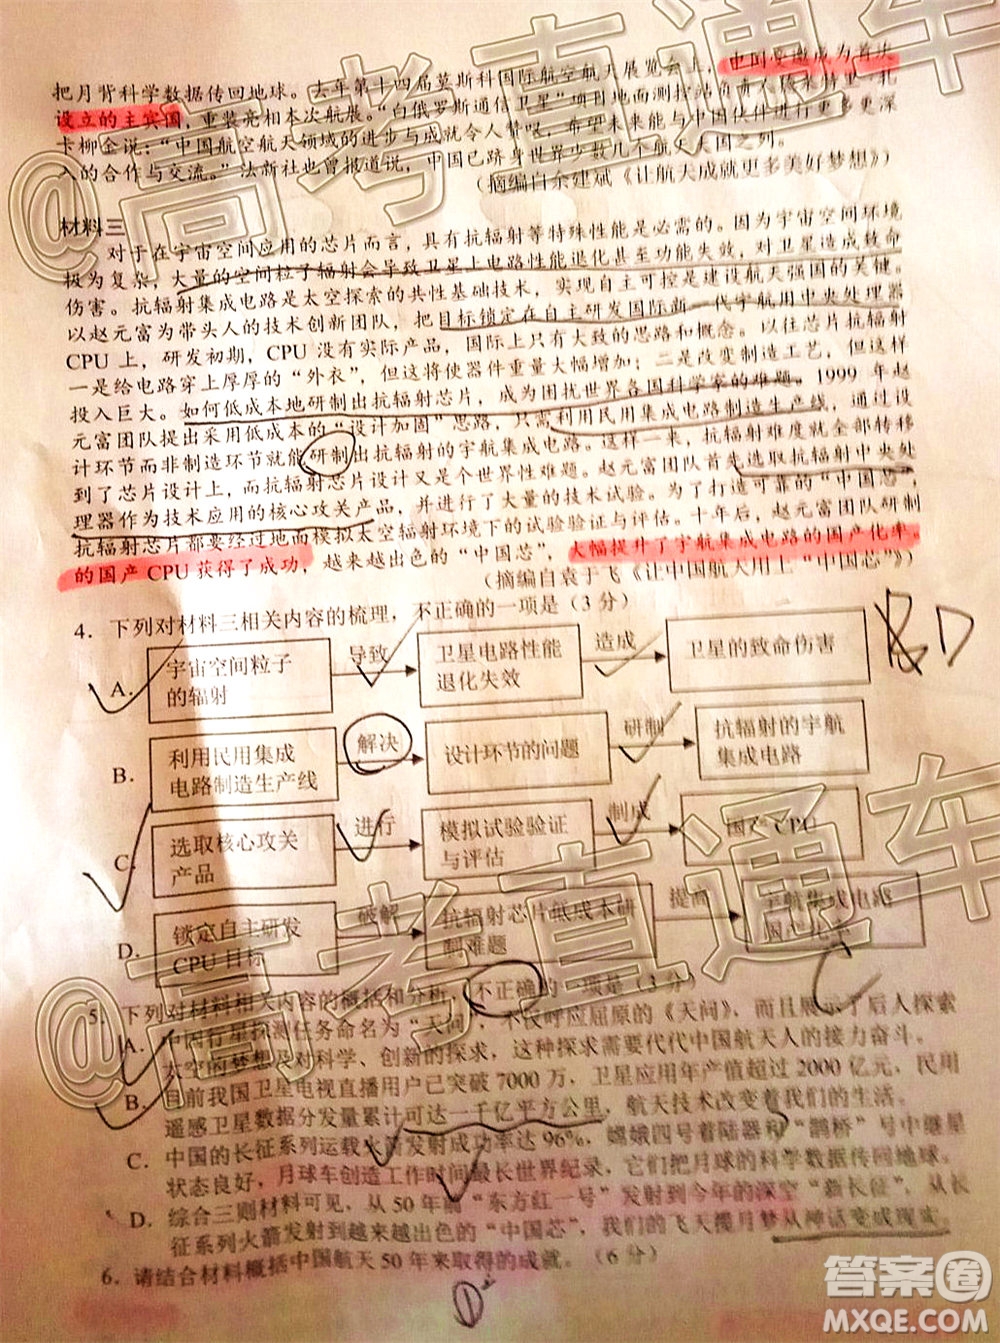 把月背科学数据传回地球。去年第十四届莫斯科国际航空航天展览会上，中国受邀成为首次
设立的主宾国，重装亮相本次航展。“白俄罗斯通信卫星”项目地面测控站负责人德米特里·扎
卡柳金说：“中国航空航天领域的进步与成就令人赞叹，希望未来能与中国伙伴进行更多更深
入的合作与交流。”法新社也曾报道说，中国已跻身世界少数几个航天大国之列。
（摘编自余建斌《让航天成就更多美好梦想》）
材料三
对于在宇宙空间应用的芯片而言，具有抗辐射等特殊性能是必需的。因为宇宙空间环境
极为复杂，大量的空间粒子辐射会导致卫星上电路性能退化甚至功能失效，对卫星造成致命
伤害。抗辐射集成电路是太空探索的共性基础技术，实现自主可控是建设航天强国的关键。
以赵元富为带头人的技术创新团队，把目标锁定在自主研发国际新一代宇航用中央处理器
CPU 上，研发初期，CPU 没有实际产品，国际上只有大致的思路和概念。以往有两种办法，
一是给电路穿上厚厚的“外衣”，但这将使器件重量大幅增加；二是改变制造工艺，但
投入巨大。如何低成本地研制出抗辐射芯片，成为困扰世界各国科学家的难题。1999 年赵
元富团队提出采用低成本的“设计加固”思路，只需利用民用集成电路制造生产线，通过设
计环节而非制造环节就能研制出抗辐射的宇航集成电路。这样一来，抗辐射难度就全部转移
到了芯片设计上，而抗辐射芯片设计又是个世界性难题。赵元富团队首先选取抗辐射中央处
理器作为技术应用的核心攻关产品，并进行了大量的技术试验。为了造出合格的“中国芯”，
抗辐射芯片都要经过地面模拟太空辐射环境下的试验验证与评估。十年后，赵元富团队研制
的国产 CPU 获得了成功，越来越出色的“中国芯”，大幅提升了宇航集成电路的国产化率。
（摘编自袁于飞《让中国航天用上“中国芯”》）
4．下列对材料三相关内容的梳理，不正确的一项是（3 分）
A． 宇宙空间粒子的辐射 导致 卫星电路性能退化失效 造成 卫星的致命伤害
B． 利用民用集成电路制造生产线 解决 设计环节的问题 研制 抗辐射的宇航集成电路
C． 选取核心攻关产品 进行 模拟试验验证与评估 制成 国产 CPU
D． 锁定自主研发CPU 目标 破解 抗辐射芯片低成本研制难题 提高 宇航集成电路国产化率
5．下列对材料相关内容的概括和分析，不正确的一项是（3 分）
A．中国行星探测任务命名为“天问”，不仅呼应屈原的《天问》，而且展示了后人探索
太空的梦想及对科学、创新的探求，这种探求需要代代中国航天人的接力奋斗。
B．目前我国卫星电视直播用户已突破 7000 万，卫星应用年产值超过 2000 亿元，民用
遥感卫星数据分发量累计可达一千亿平方公里，航天技术改变着我们的生活。
C．中国的长征系列运载火箭发射成功率达 96%，嫦娥四号着陆器和“鹊桥”号
状态良好，月球车创造工作时间最长世界纪录，它们把月球的科学数据传回地球。
D．综合三则材料可见，从 50 年前“东方红一号”发射到今年的深空“新长征”，从长
征系列火箭发射到越来越出色的“中国芯”，我们的飞天揽月梦从神话变成现实。
6．请结合材料概括中国航天 50 年来取得的成就。（6 分）
BD
C
①
@高考直通车
@高考直通车
答案圈
MXQE.COM